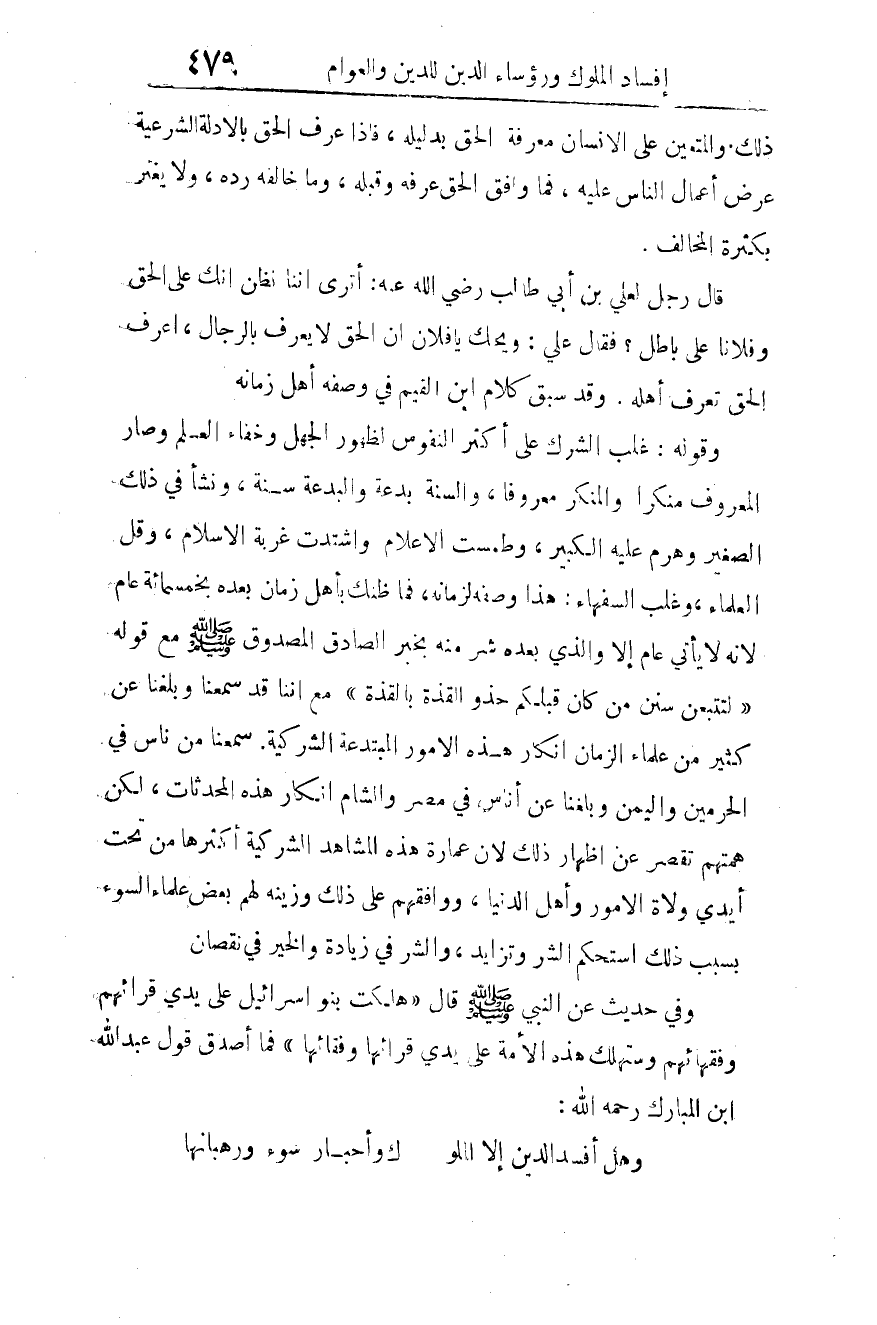 إفساد الملوك ورؤساء الدين للدين والعوام ٤٧٩
ذلك. والمتعين على الانسان معرفة الحق بدليله ، فاذا عرف الحق بالادلة الشرعية
عرض أعمال الناس عليه ، فما وافق الحق عرفه وقبله ، وما خالفه رده ، ولا يغتر
بكثرة المخالف .
قال رجل لعلي بن أبي طالب رضي الله عنه : أترى اننا نظن انك على الحق
وفلانا على باطل ؟ فقال علي : ويحك يافلان ان الحق لا يعرف بالرجال ، اعرف
الحق تعرف أهله . وقد سبق كلام ابن القيم في وصفه أهل زمانه
وقوله : غلب الشرك على أكثر النفوس لظهور الجهل وخفاء العلم وصار
المعروف منكرا والمنكر معروفا ، والسنة بدعة والبدعة سنة ، ونشأ في ذلك
الصغير وهرم عليه الكبير ، وطمست الاعلام واشتدت غربة الاسلام ، وقل
العلماء ، وغلب السفهاء : هذا وصفه لزمانه ، فما ظنك بأهل زمان بعده بخمسمائة عام
لانه لا يأتي عام إلا والذي بعده شر منه بخبر الصادق المصدوق ﷺ مع قوله
« لتتبعن سنن من كان قبلكم حذو القذة بالقذة » مع اننا قد سمعنا وبلغنا عن
كثير من علماء الزمان انكار هذه الامور المبتدعة الشركية. سمعنا من ناس في
الحرمين واليمن وبلغنا عن أناس في مصر والشام انكار هذه المحدثات ، لكن
همتهم تقصر عن اظهار ذلك لان عمارة هذه المشاهد الشركية أكثرها من تحت
أيدي ولاة الامور وأهل الدنيا ، ووافقهم على ذلك وزينه لهم بعض علماء السوء
بسبب ذلك استحكم الشر وتزايد ، والشر في زيادة والخير في نقصان
وفي حديث عن النبي ﷺ قال « هلكت بنو اسرائيل على يدي قرائهم
وفقهائهم وستهلك هذه الأمة على يدي قرائها وفقائها » فما أصدق قول عبدالله
ابن المبارك رحمه الله :
وهل أفسد الدين إلا الملو ك وأحبار سوء ورهبانها